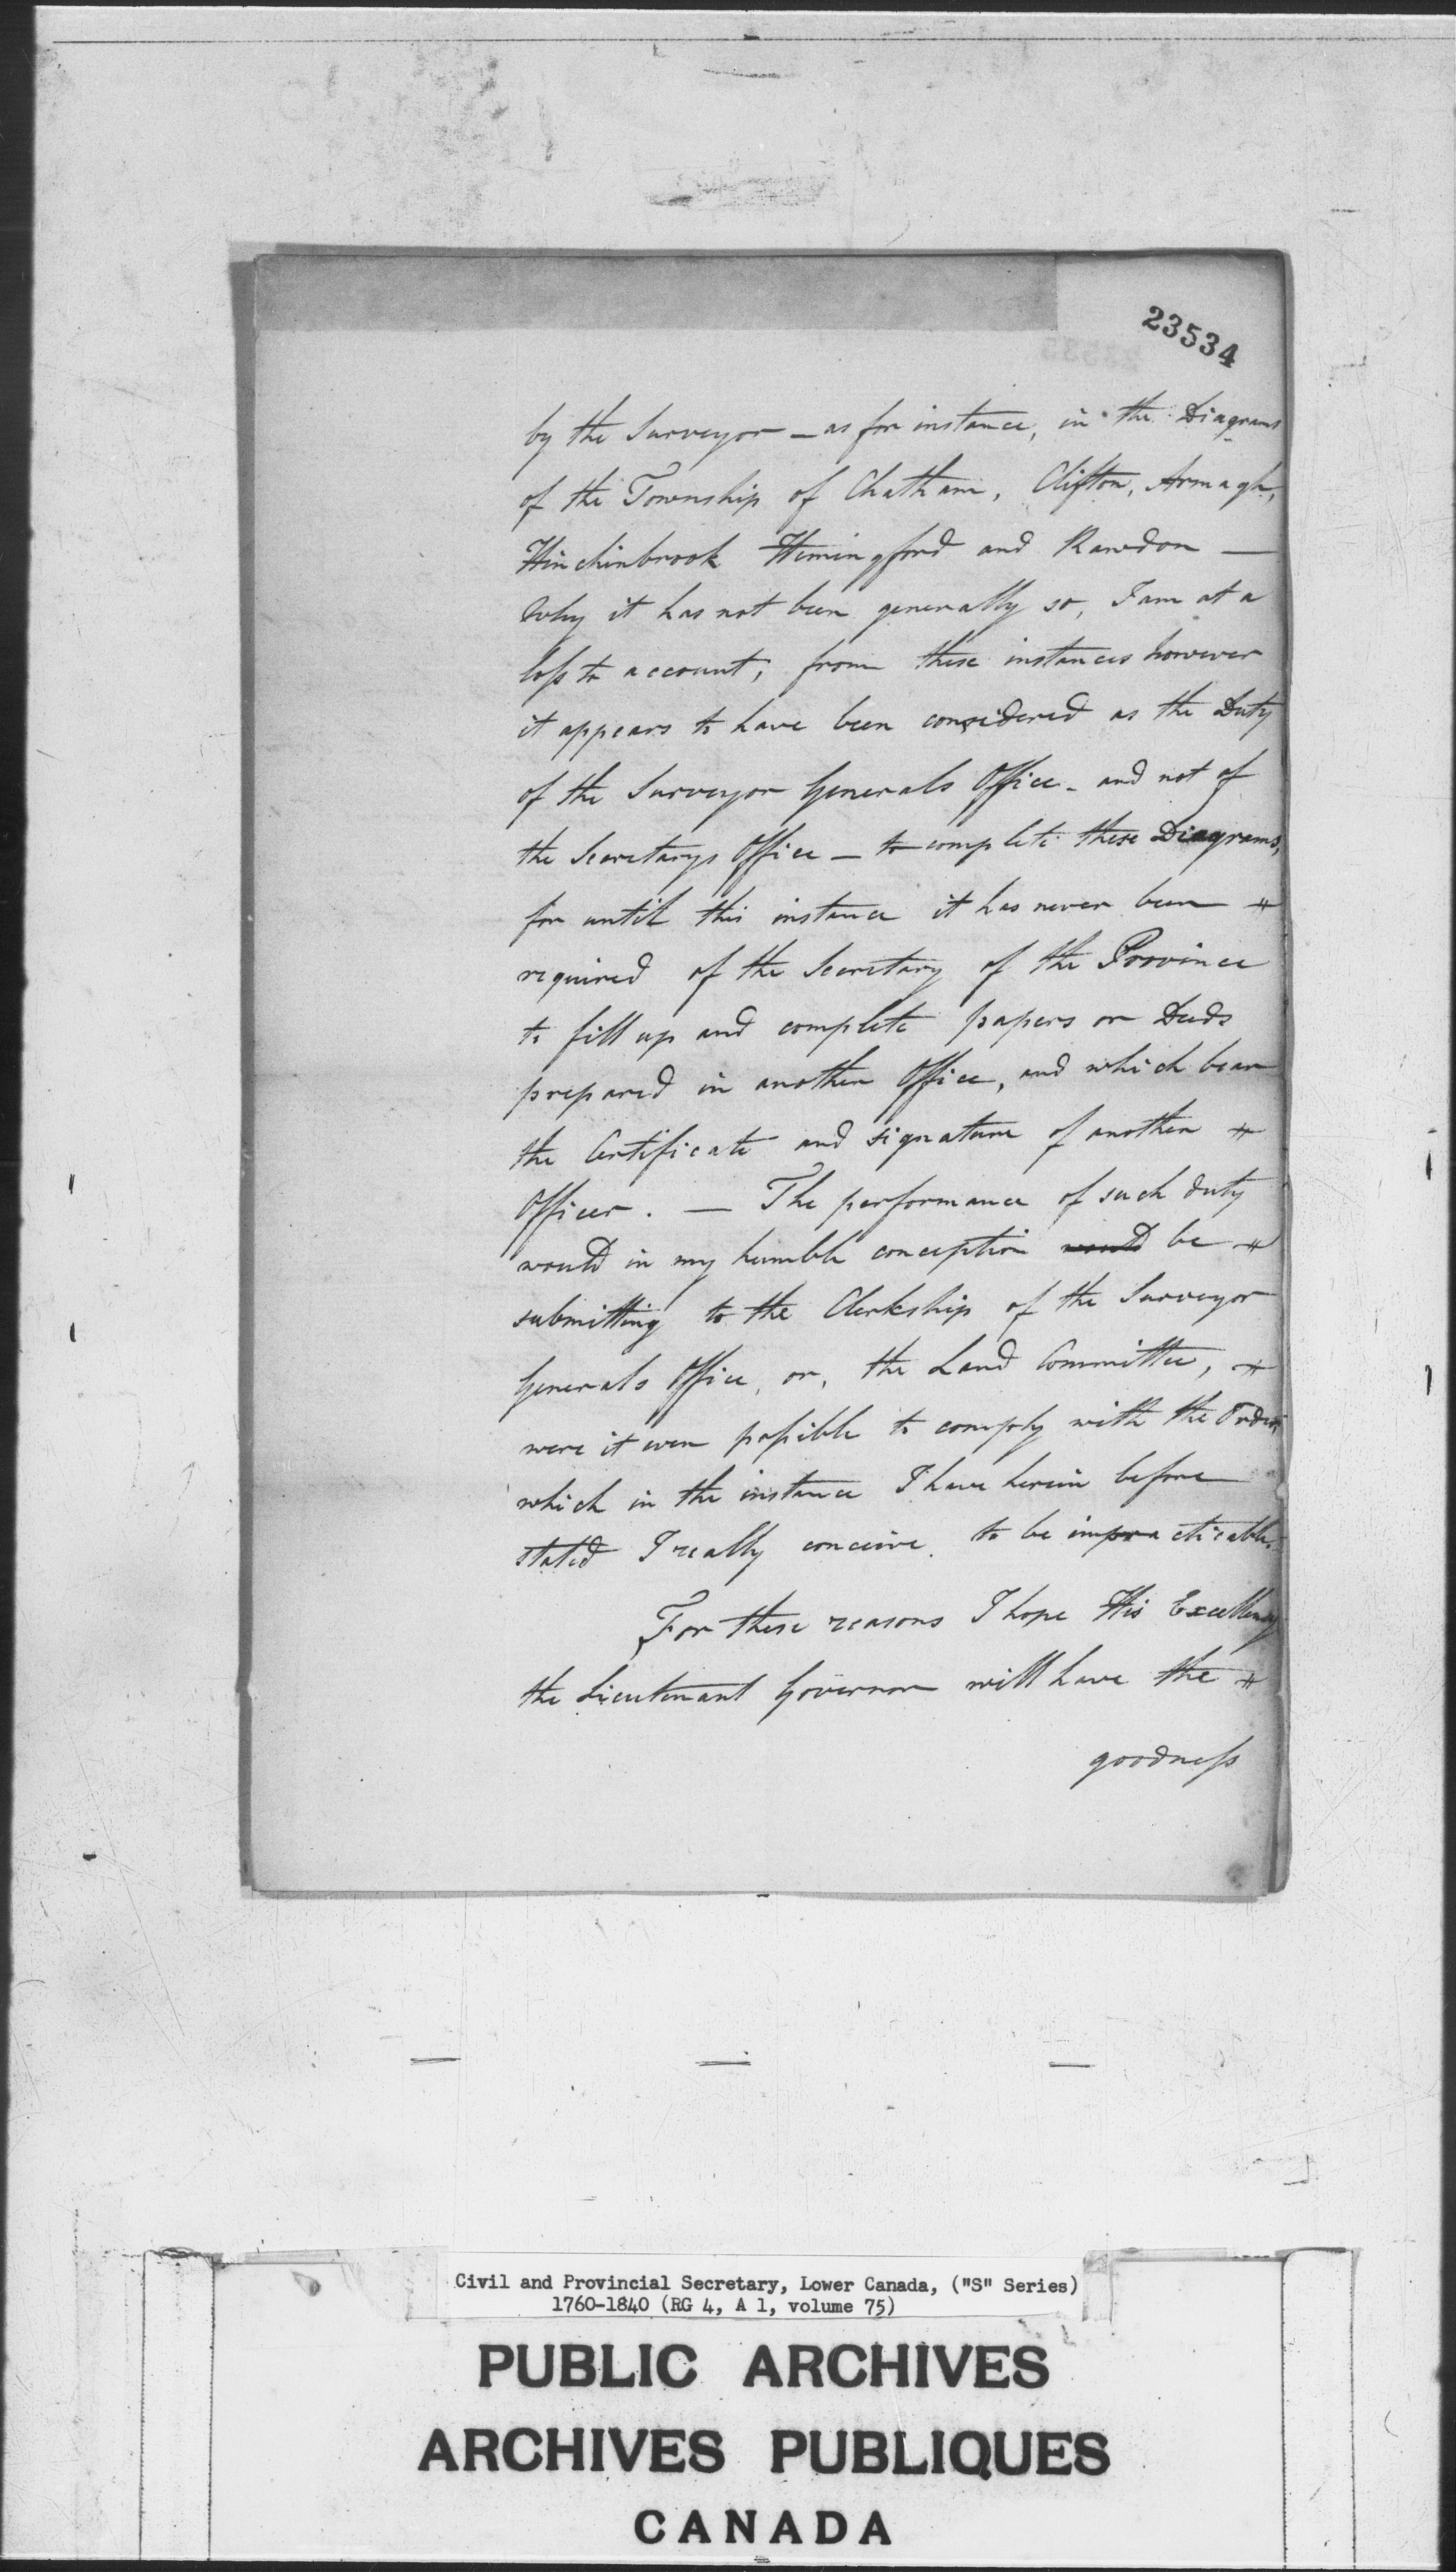 23534
by the Surveyor — as for instance, in the Diagrams
of the Township of Chatham, Clifton, Armagh,
Hinchinbrook Hemingford and Rawdon —
Why it has not been generally so, I am at a
loss to account; from these instances however
it appears to have been considered as the Duty
of the Surveyor Generals Office - and not of
the Secretarys Office — to complete these Diagrams,
for until this instance it has never been
required of the Secretary of the Province
to fill up and complete papers or Deeds
prepared in another Office, and which bear
the Certificate and signature of another
Officer. — The performance of such duty
would in my humble conception would be
submitting to the Clerkship of the Surveyor
Generals Office, or, the Land Committee,
were it even possible to comply with the Order,
which in the instance I have herein before
stated I really conceive to be impracticable.
For these reasons I hope His Excellency
the Lieutenant Governor will have the
goodness
Civil and Provincial Secretary, Lower Canada, ("S" Series)
1760-1840 (RG 4, A 1, volume 75)
PUBLIC ARCHIVES
ARCHIVES PUBLIQUES
CANADA